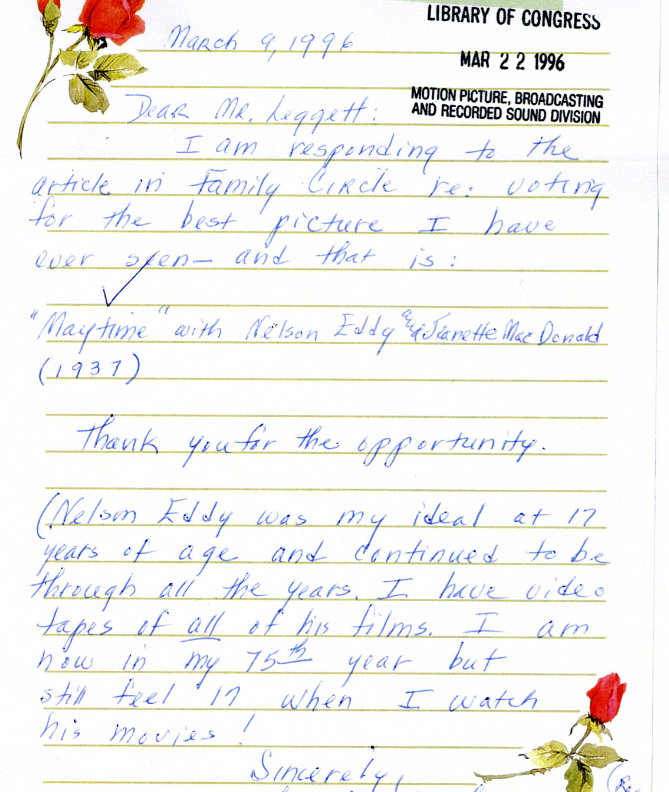 LIBRARY OF CONGRESS
MAR 22 1996
MOTION PICTURE, BROADCASTING
AND RECORDED SOUND DIVISION
March 9, 1996
Dear Mr. Leggett:
I am responding to the
article in Family Circle re: voting
for the best picture I have
ever seen— and that is:
"Maytime" with Nelson Eddy & Jeanette MacDonald
(1937)
Thank you for the opportunity.
(Nelson Eddy was my ideal at 17
years of age and continued to be
through all the years. I have video
tapes of all of his films. I am
now in my 75th year but
still feel 17 when I watch
his movies!
Sincerely,